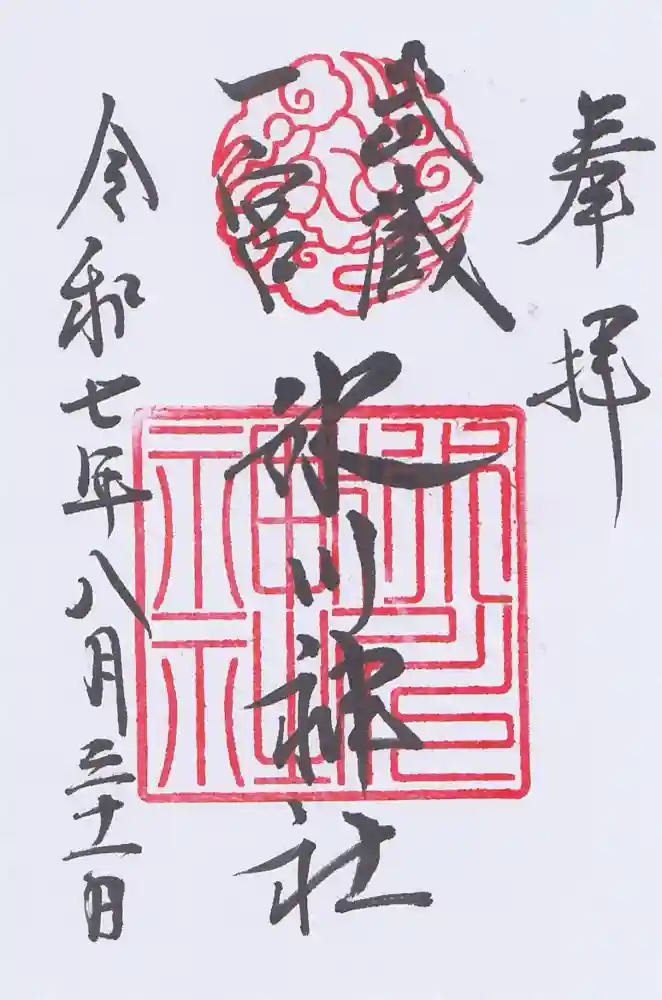 奉拝
武蔵
一宮
氷川神社
令和七年八月三十一日